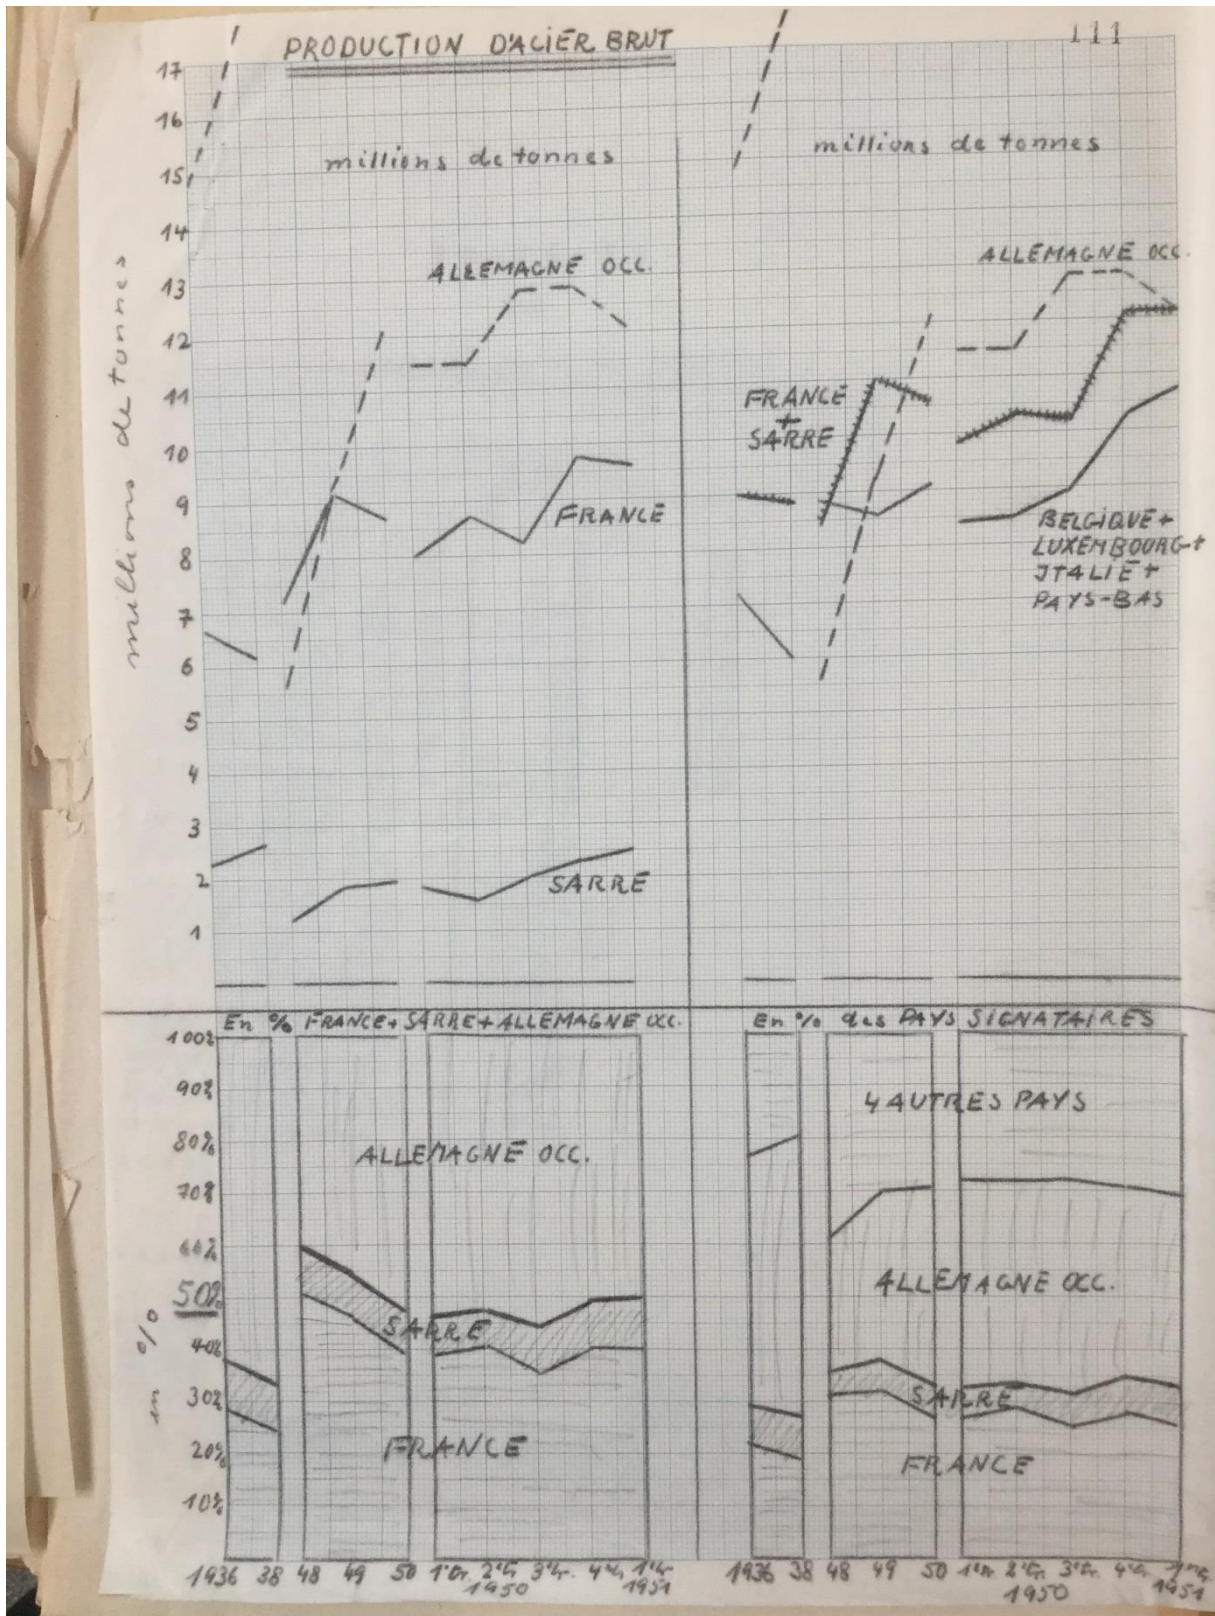 111
PRODUCTION D'ACIER BRUT
17
16
15
14
13
12
11
10
9
8
7
6
5
4
3
2
1
millions de tonnes
millions de tonnes
ALLEMAGNE OCC.
FRANCE
SARRE
millions de tonnes
ALLEMAGNE OCC.
FRANCE
+
SARRE
BELGIQUE+
LUXEMBOURG+
ITALIE+
PAYS-BAS
En % FRANCE+SARRE+ALLEMAGNE OCC.
100%
90%
80%
70%
60%
50%
40%
30%
20%
10%
en %
ALLEMAGNE OCC.
SARRE
FRANCE
1936 38 48 49 50 1er tr. 2e tr. 3e tr. 4e tr. 1er tr.
1950 1951
En % des PAYS SIGNATAIRES
4 AUTRES PAYS
ALLEMAGNE OCC.
SARRE
FRANCE
1936 38 48 49 50 1er tr. 2e tr. 3e tr. 4e tr. 1er tr.
1950 1951